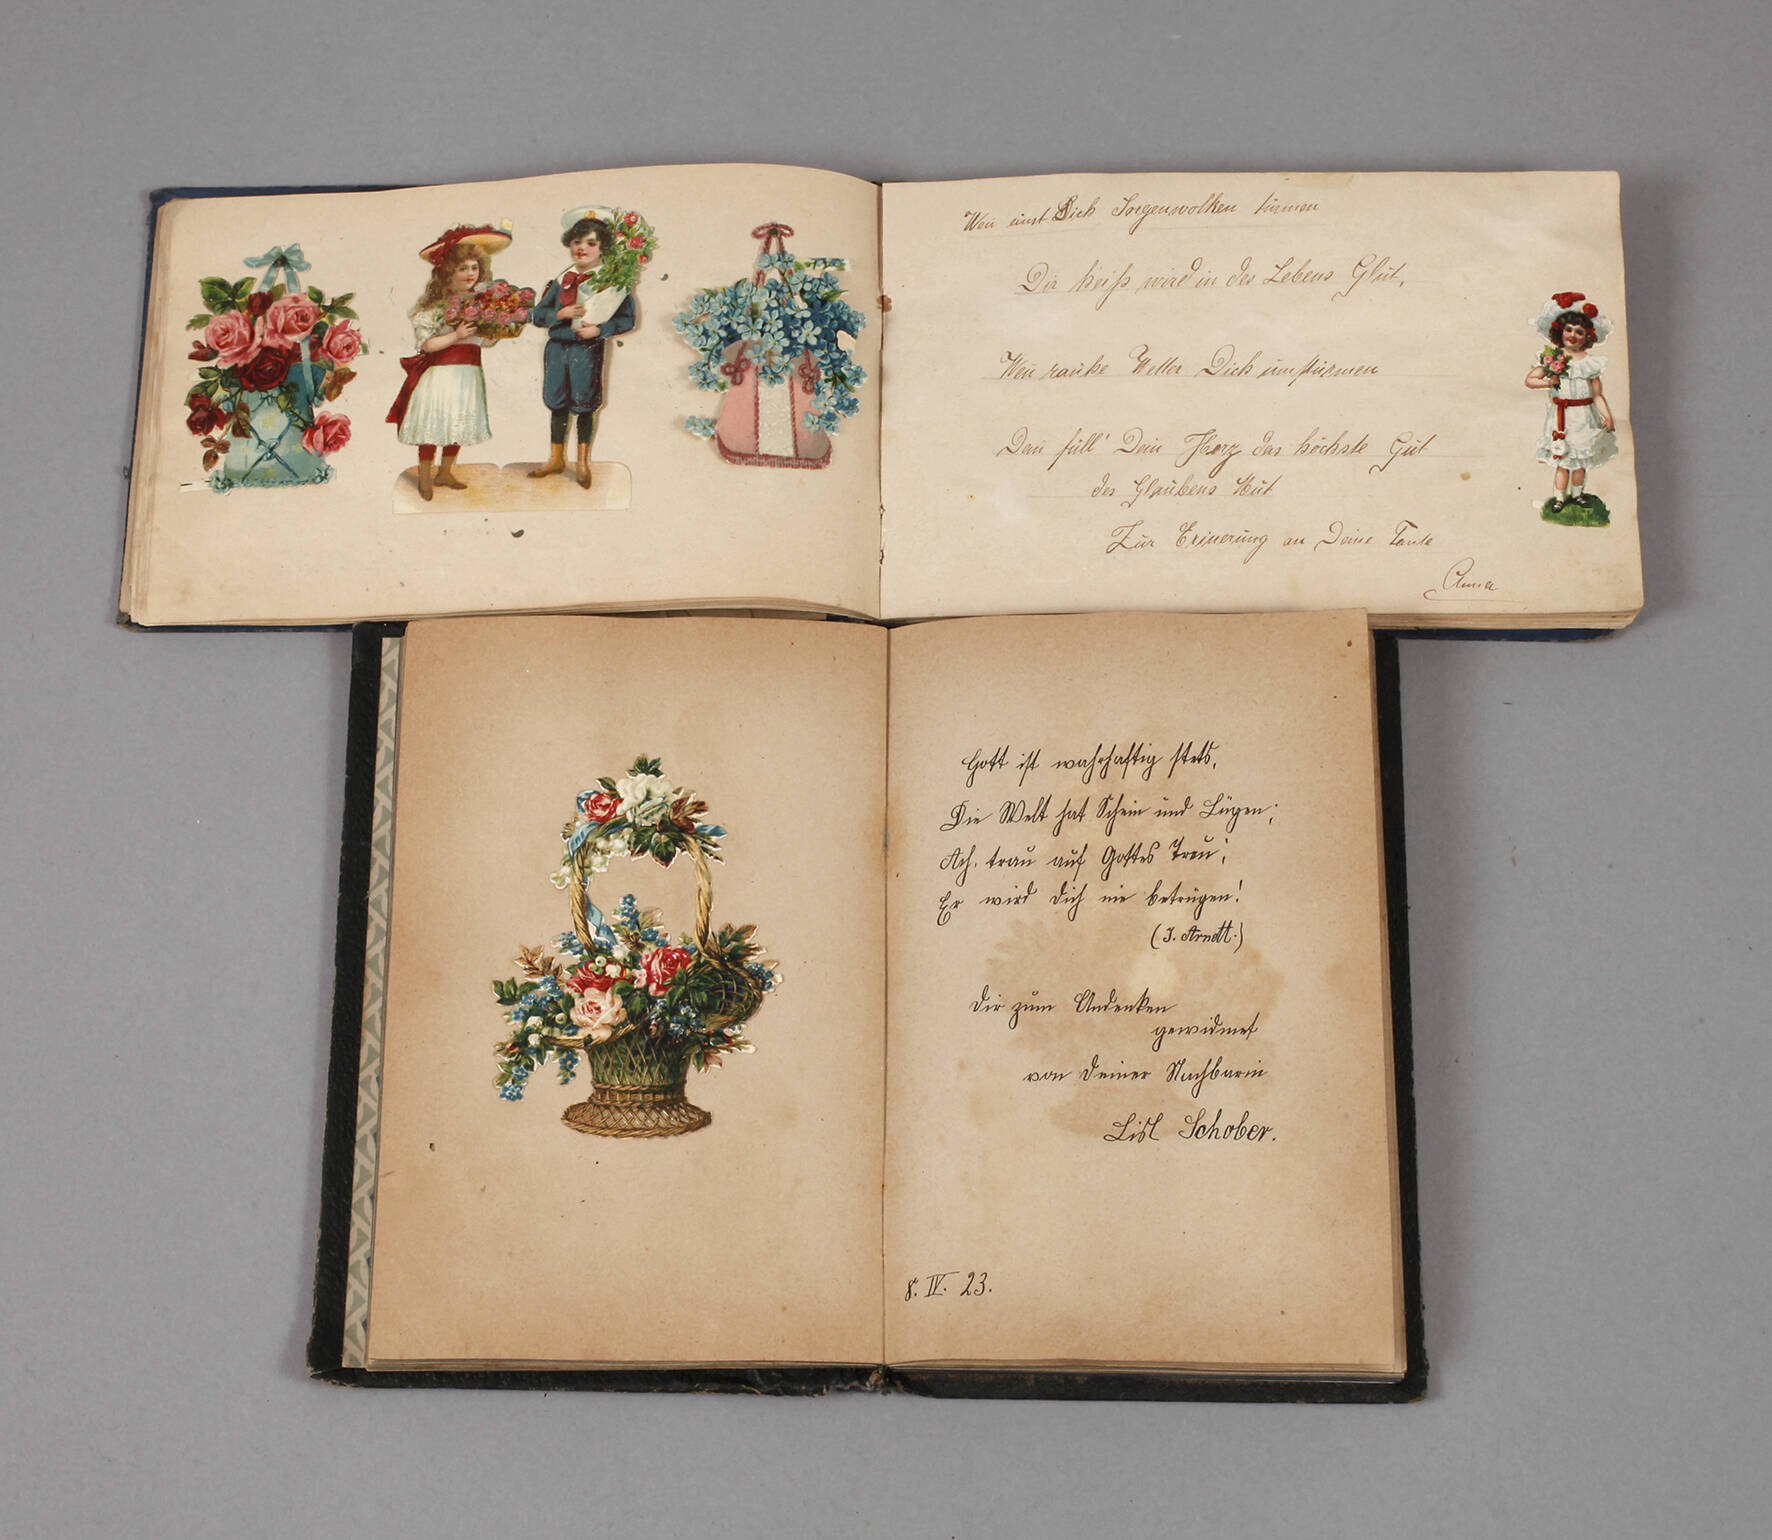 Weñ einst Dich Sorgenwolken türmen
Dir heiß wird in des Lebens Glut,
Weñ rauhe Wetter Dich umstürmen
Dañ füll' Dein Herz das höchste Gut
des Glaubens Mut
Zur Erinerung an Deine Tante
Anna
Gott ist wahrhaftig stets,
Die Welt hat Schein und Lügen;
Ach, trau auf Gottes Treu;
Er wird dich nie betrügen!
(J. Arndt.)
Dir zum Andenken
gewidmet
von deiner Nachbarin
Lisl Schober.
8. IV. 23.